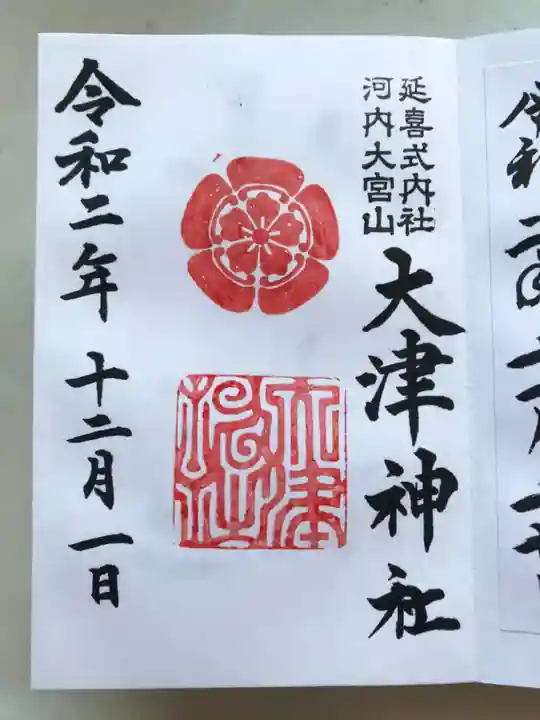 延喜式内社
河内大宮山
大津神社
大津神社
令和二年 十二月一日